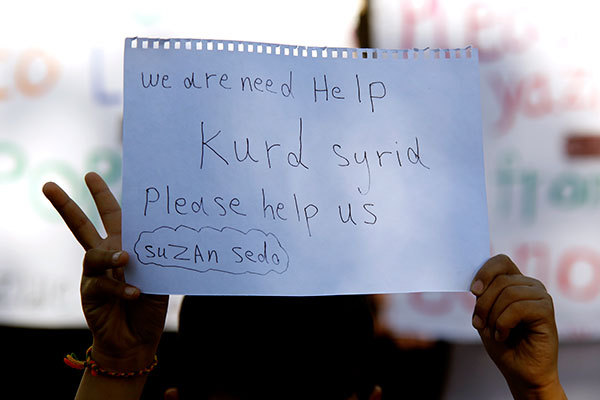 we are need Help
Kurd syrid
Please help us
suzAn sedo